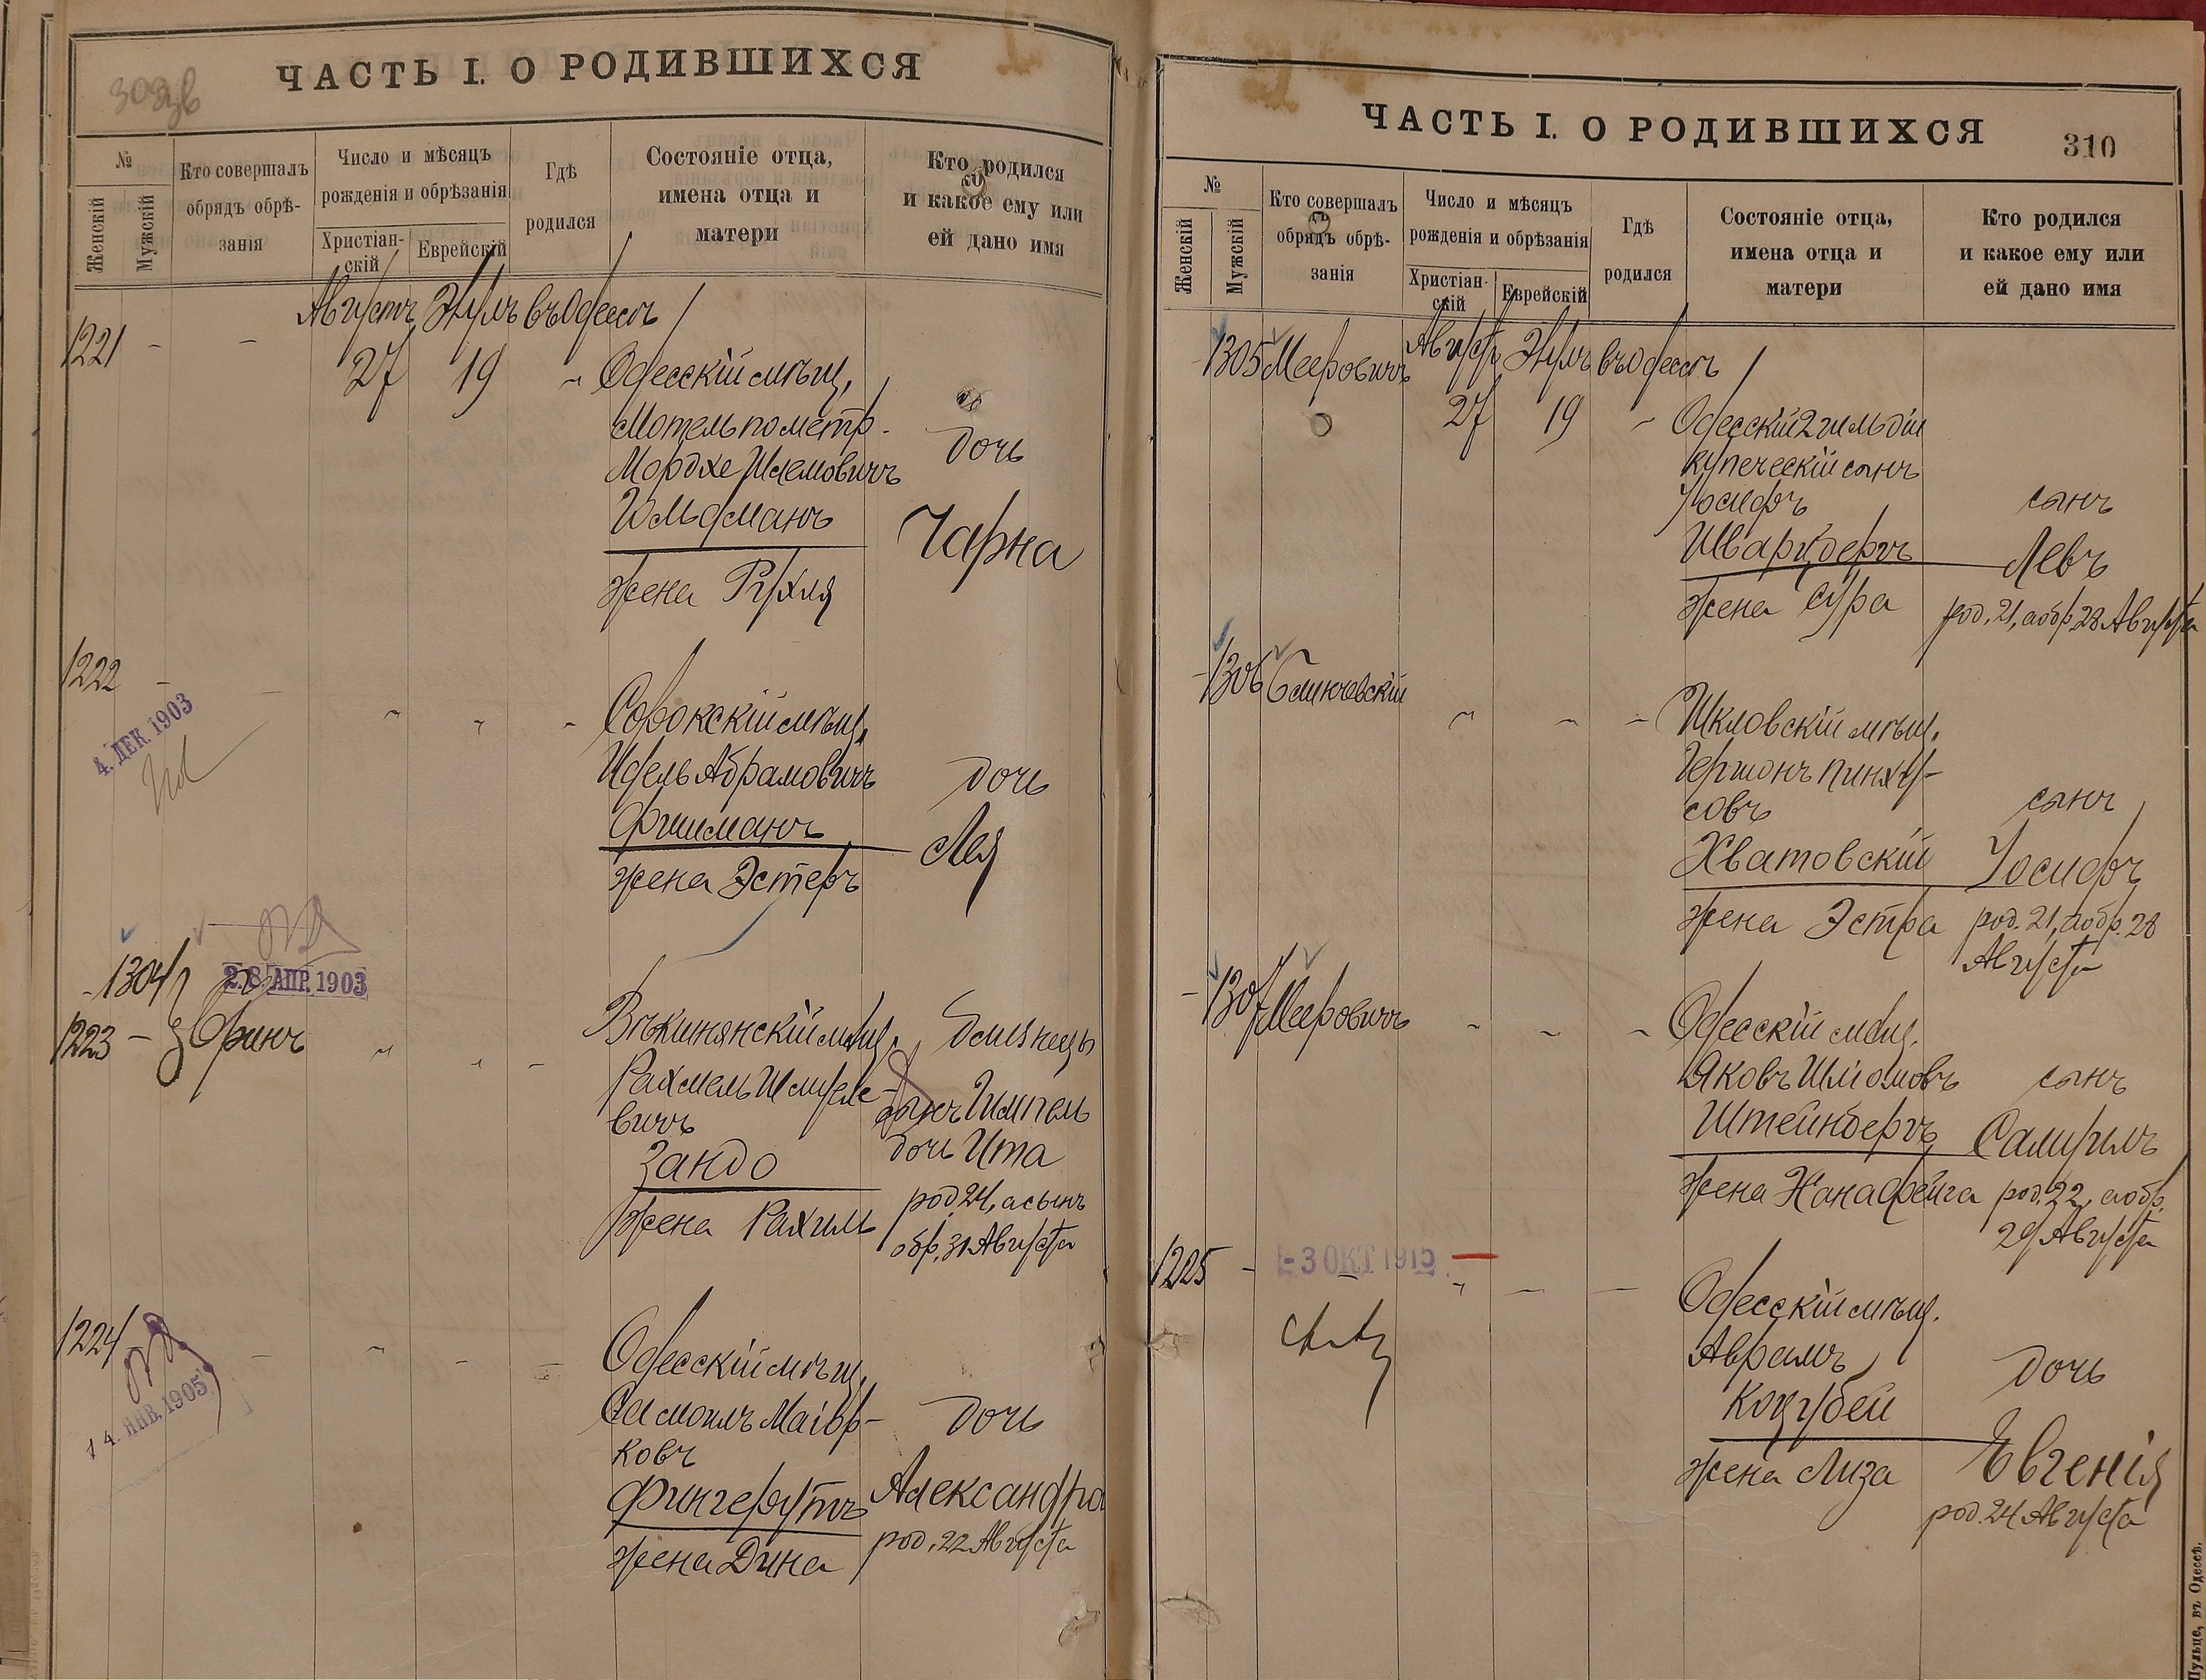 ЧАСТЬ I. О РОДИВШИХСЯ
№
Женскій
Мужскій
Кто совершалъ
обрядъ обрѣ-
занія
Число и мѣсяцъ
рожденія и обрѣзанія
Христіан-
скій
Еврейскій
Гдѣ
родился
Состояніе отца,
имена отца и
матери
Кто родился
и какое ему или
ей дано имя
Августъ Элулъ въ Одессѣ
1221 - -
27 19 "
Одесскій мѣщ.
Мотель по метр.
Мордхе Шлемовичъ
Гольдманъ
жена Рухля
дочь
Чарна
1222 - -
4. ДЕК. 1903
Сорокскій мѣщ.
Идель Абрамовичъ
Фишманъ
жена Эстеръ
дочь
Лея
1304
28 АПР. 1903
1223 - Фринъ
мѣщ.
Рахмель
вичъ
Зандо
жена Рахиль
близнецы
сынъ Гимпель
дочь Ита
род. 24, а сынъ
обр. 31 Августа
1224
14. ЯНВ. 1905
Одесскій мѣщ.
Самоилъ
ковъ
Фингерутъ
жена Дина
дочь
Александра
род. 22 Августа
ЧАСТЬ I. О РОДИВШИХСЯ
310
№
Женскій
Мужскій
Кто совершалъ
обрядъ обрѣ-
занія
Число и мѣсяцъ
рожденія и обрѣзанія
Христіан-
скій
Еврейскій
Гдѣ
родился
Состояніе отца,
имена отца и
матери
Кто родился
и какое ему или
ей дано имя
1305 Мееровичъ Августъ Элулъ въ Одессѣ
27 19 "
Одесскій 2 гильдіи
купеческій сынъ
Іосифъ
Шварцбергъ
жена Сура
сынъ
Левъ
род. 21, а обр. 28 Августа
1306
Шкловскій мѣщ.
Гершонъ Пинху-
совъ
Хватовскій
жена Эстра
сынъ
Іосифъ
род. 21, а обр. 28
Августа
1307 Мееровичъ
Одесскій мѣщ.
Яковъ Шліомовъ
Штейнбергъ
жена Ханафейга
сынъ
Самуилъ
род. 22, а обр.
29 Августа
1225 -
- 3 ОКТ 1915
Одесскій мѣщ.
Аврамъ
Коцубей
жена Лиза
дочь
Евгенія
род. 24 Августа